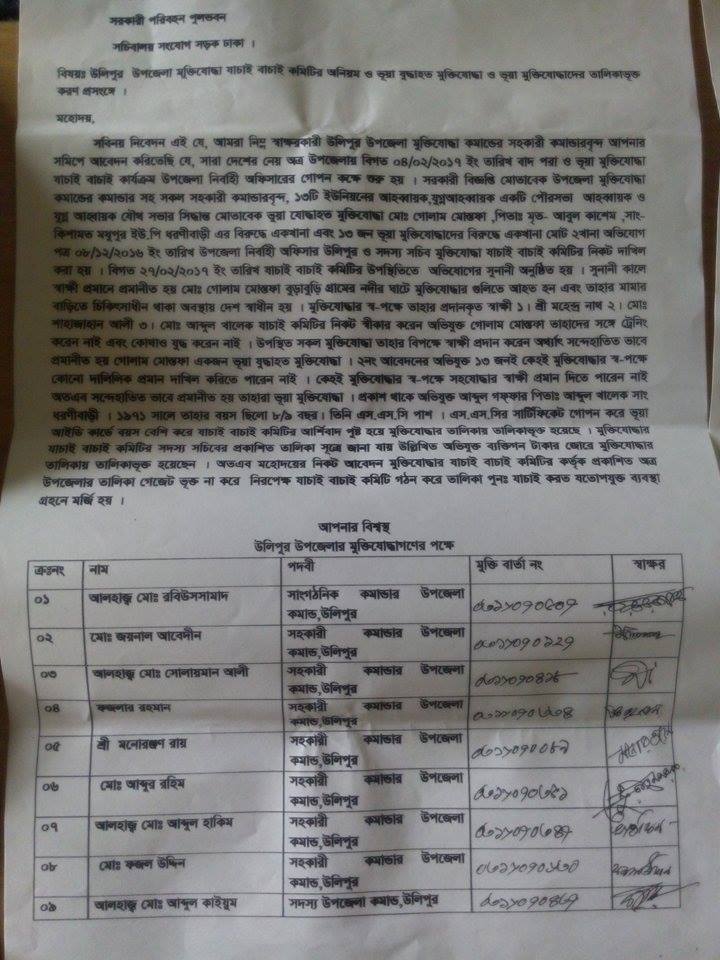 সরকারী পরিবহন পুলভবন
সচিবালয় সংযোগ সড়ক ঢাকা ।
বিষয়ঃ উলিপুর উপজেলা মুক্তিযোদ্ধা যাচাই বাচাই কমিটির অনিয়ম ও ভূয়া যুদ্ধাহত মুক্তিযোদ্ধা ও ভূয়া মুক্তিযোদ্ধাদের তালিকাভূক্ত
করণ প্রসংঙ্গে ।
মহোদয়,
সবিনয় নিবেদন এই যে, আমরা নিম্ন স্বাক্ষরকারী উলিপুর উপজেলা মুক্তিযোদ্ধা কমান্ডের সহকারী কমান্ডারবৃন্দ আপনার
সমিপে আবেদন করিতেছি যে, সারা দেশের নেয় অত্র উপজেলায় বিগত ০৪/০২/২০১৭ ইং তারিখ বাদ পরা ও ভূয়া মুক্তিযোদ্ধা
যাচাই বাচাই কার্যক্রম উপজেলা নির্বাহী অফিসারের গোপন কক্ষে শুরু হয় । সরকারী বিজ্ঞপ্তি মোতাবেক উপজেলা মুক্তিযোদ্ধা
কমান্ডের কমান্ডার সহ সকল সহকারী কমান্ডারবৃন্দ, ১৩টি ইউনিয়নের আহবায়ক,যুগ্নআহবায়ক একটি পৌরসভা আহবায়ক ও
যুগ্ন আহবায়ক যৌথ সভার সিদ্ধান্ত মোতাবেক ভূয়া যোদ্ধাহত মুক্তিযোদ্ধা মোঃ গোলাম মোস্তফা ,পিতাঃ মৃত- আবুল কাশেম ,সাং-
কিশামত মধুপুর ইউ,পি ধরণীবাড়ী এর বিরুদ্ধে একখানা এবং ১৩ জন ভূয়া মুক্তিযোদ্ধাদের বিরুদ্ধে একখানা মোট ২খানা অভিযোগ
পত্র ০৮/১২/২০১৬ ইং তারিখ উপজেলা নির্বাহী অফিসার উলিপুর ও সদস্য সচিব মুক্তিযোদ্ধা যাচাই বাচাই কমিটির নিকট দাখিল
করা হয় । বিগত ২৭/০২/২০১৭ ইং তারিখ যাচাই বাচাই কমিটির উপস্থিতিতে অভিযোগের সুনানী অনুষ্ঠিত হয় । সুনানী কালে
স্বাক্ষী প্রমানে প্রমানীত হয় মোঃ গোলাম মোস্তফা বুড়াবুড়ি গ্রামের নদীর ঘাটে মুক্তিযোদ্ধার গুলিতে আহত হন এবং তাহার মামার
বাড়িতে চিকিৎসাধীন থাকা অবস্থায় দেশ স্বাধীন হয় । মুক্তিযোদ্ধার স্ব-পক্ষে তাহার প্রদানকৃত স্বাক্ষী ১। শ্রী মহেন্দ্র নাথ ২। মোঃ
শাহাজাহান আলী ৩। মোঃ আব্দুল খালেক যাচাই কমিটির নিকট স্বীকার করেন অভিযুক্ত গোলাম মোস্তফা তাহাদের সঙ্গে ট্রেনিং
করেন নাই এবং কোথাও যুদ্ধ করেন নাই । উপস্থিত সকল মুক্তিযোদ্ধা তাহার বিপক্ষে স্বাক্ষী প্রদান করেন অর্থ্যাৎ সন্দেহাতিত ভাবে
প্রমানীত হয় গোলাম মোস্তফা একজন ভূয়া যুদ্ধাহত মুক্তিযোদ্ধা । ২নং আবেদনের অভিযুক্ত ১৩ জনই কেহই মুক্তিযোদ্ধার স্ব-পক্ষে
কোনো দালিলিক প্রমান দাখিল করিতে পারেন নাই । কেহই মুক্তিযোদ্ধার স্ব-পক্ষে সহযোদ্ধার স্বাক্ষী প্রমান দিতে পারেন নাই
অতএব সন্দেহাতিত ভাবে প্রমানীত হয় তাহারা ভূয়া মুক্তিযোদ্ধা । প্রকাশ থাকে অভিযুক্ত আব্দুল গফফার পিতাঃ আব্দুল খালেক সাং
ধরণীবাড়ী । ১৯৭১ সালে তাহার বয়স ছিলো ৮/৯ বছর । তিনি এস.এস.সি পাশ । এস.এস.সির সার্টিফিকেট গোপন করে ভূয়া
আইডি কার্ডে বয়স বেশি করে যাচাই বাচাই কমিটির আর্শিবাদ পুষ্ট হয়ে মুক্তিযোদ্ধার তালিকায় তালিকাভূক্ত হয়েছে । মুক্তিযোদ্ধার
যাচাই বাচাই কমিটির সদস্য সচিবের প্রকাশিত তালিকা সূত্রে জানা যায় উল্লিখিত অভিযুক্ত ব্যক্তিগন টাকার জোরে মুক্তিযোদ্ধার
তালিকায় তালিকাভূক্ত হয়েছেন । অতএব মহোদয়ের নিকট আবেদন মুক্তিযোদ্ধার যাচাই বাচাই কমিটির কর্তৃক প্রকাশিত অত্র
উপজেলার তালিকা গেজেট ভূক্ত না করে নিরপেক্ষ যাচাই বাচাই কমিটি গঠন করে তালিকা পুনঃ যাচাই করত যতোপযুক্ত ব্যবস্থা
গ্রহনে মর্জি হয় ।
আপনার বিশ্বস্থ
উলিপুর উপজেলার মুক্তিযোদ্ধাগণের পক্ষে
ক্রঃনং নাম পদবী মুক্তি বার্তা নং স্বাক্ষর
০১ আলহাজ্ব মোঃ রবিউসসামাদ সাংগঠনিক কমান্ডার উপজেলা
কমান্ড,উলিপুর
০২ মোঃ জয়নাল আবেদীন সহকারী কমান্ডার উপজেলা
কমান্ড,উলিপুর
০৩ আলহাজ্ব মোঃ সোলায়মান আলী সহকারী কমান্ডার উপজেলা
কমান্ড,উলিপুর
০৪ ফজলার রহমান সহকারী কমান্ডার উপজেলা
কমান্ড,উলিপুর
০৫ শ্রী মনোরঞ্জণ রায় সহকারী কমান্ডার উপজেলা
কমান্ড,উলিপুর
০৬ মোঃ আব্দুর রহিম সহকারী কমান্ডার উপজেলা
কমান্ড,উলিপুর
০৭ আলহাজ্ব মোঃ আব্দুল হাকিম সহকারী কমান্ডার উপজেলা
কমান্ড,উলিপুর
০৮ মোঃ ফজল উদ্দিন সহকারী কমান্ডার উপজেলা
কমান্ড,উলিপুর
০৯ আলহাজ্ব মোঃ আব্দুল কাইয়ুম সদস্য উপজেলা কমান্ড,উলিপুর